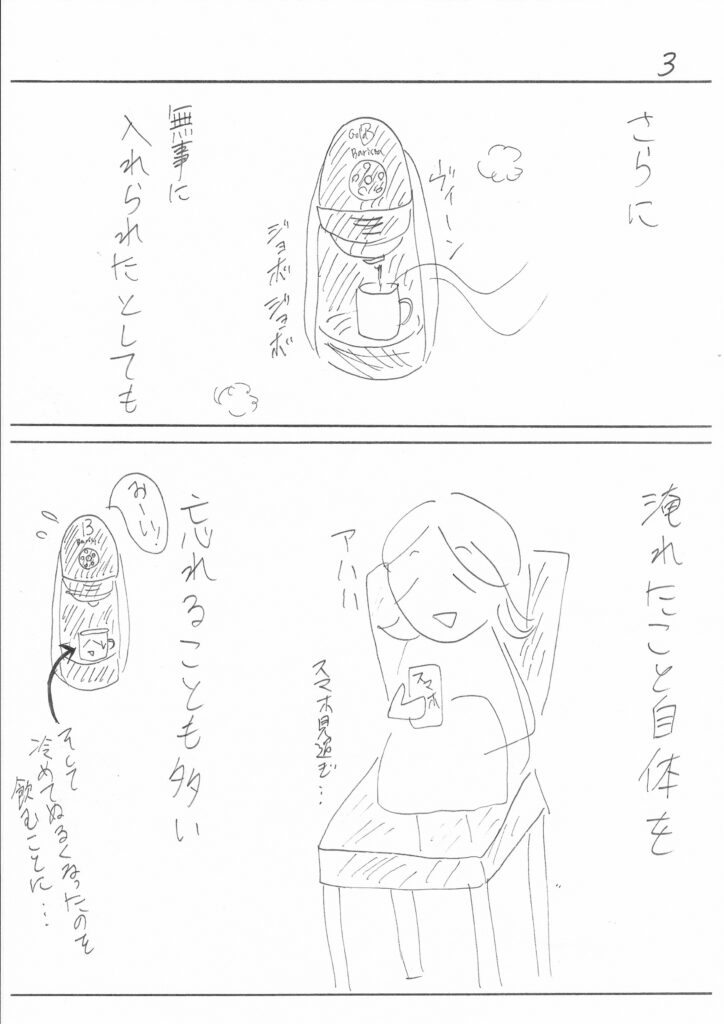 3
さらに
Gold
Barista
ヴィーン
ジョボジョボ
無事に
入れられたとしても
淹れたこと自体を
アハハ
スマホ
スマホ見過ぎ…
忘れることも多い
おーい!
B
Barista
そして
冷めてぬるくなったのを
飲むことに…